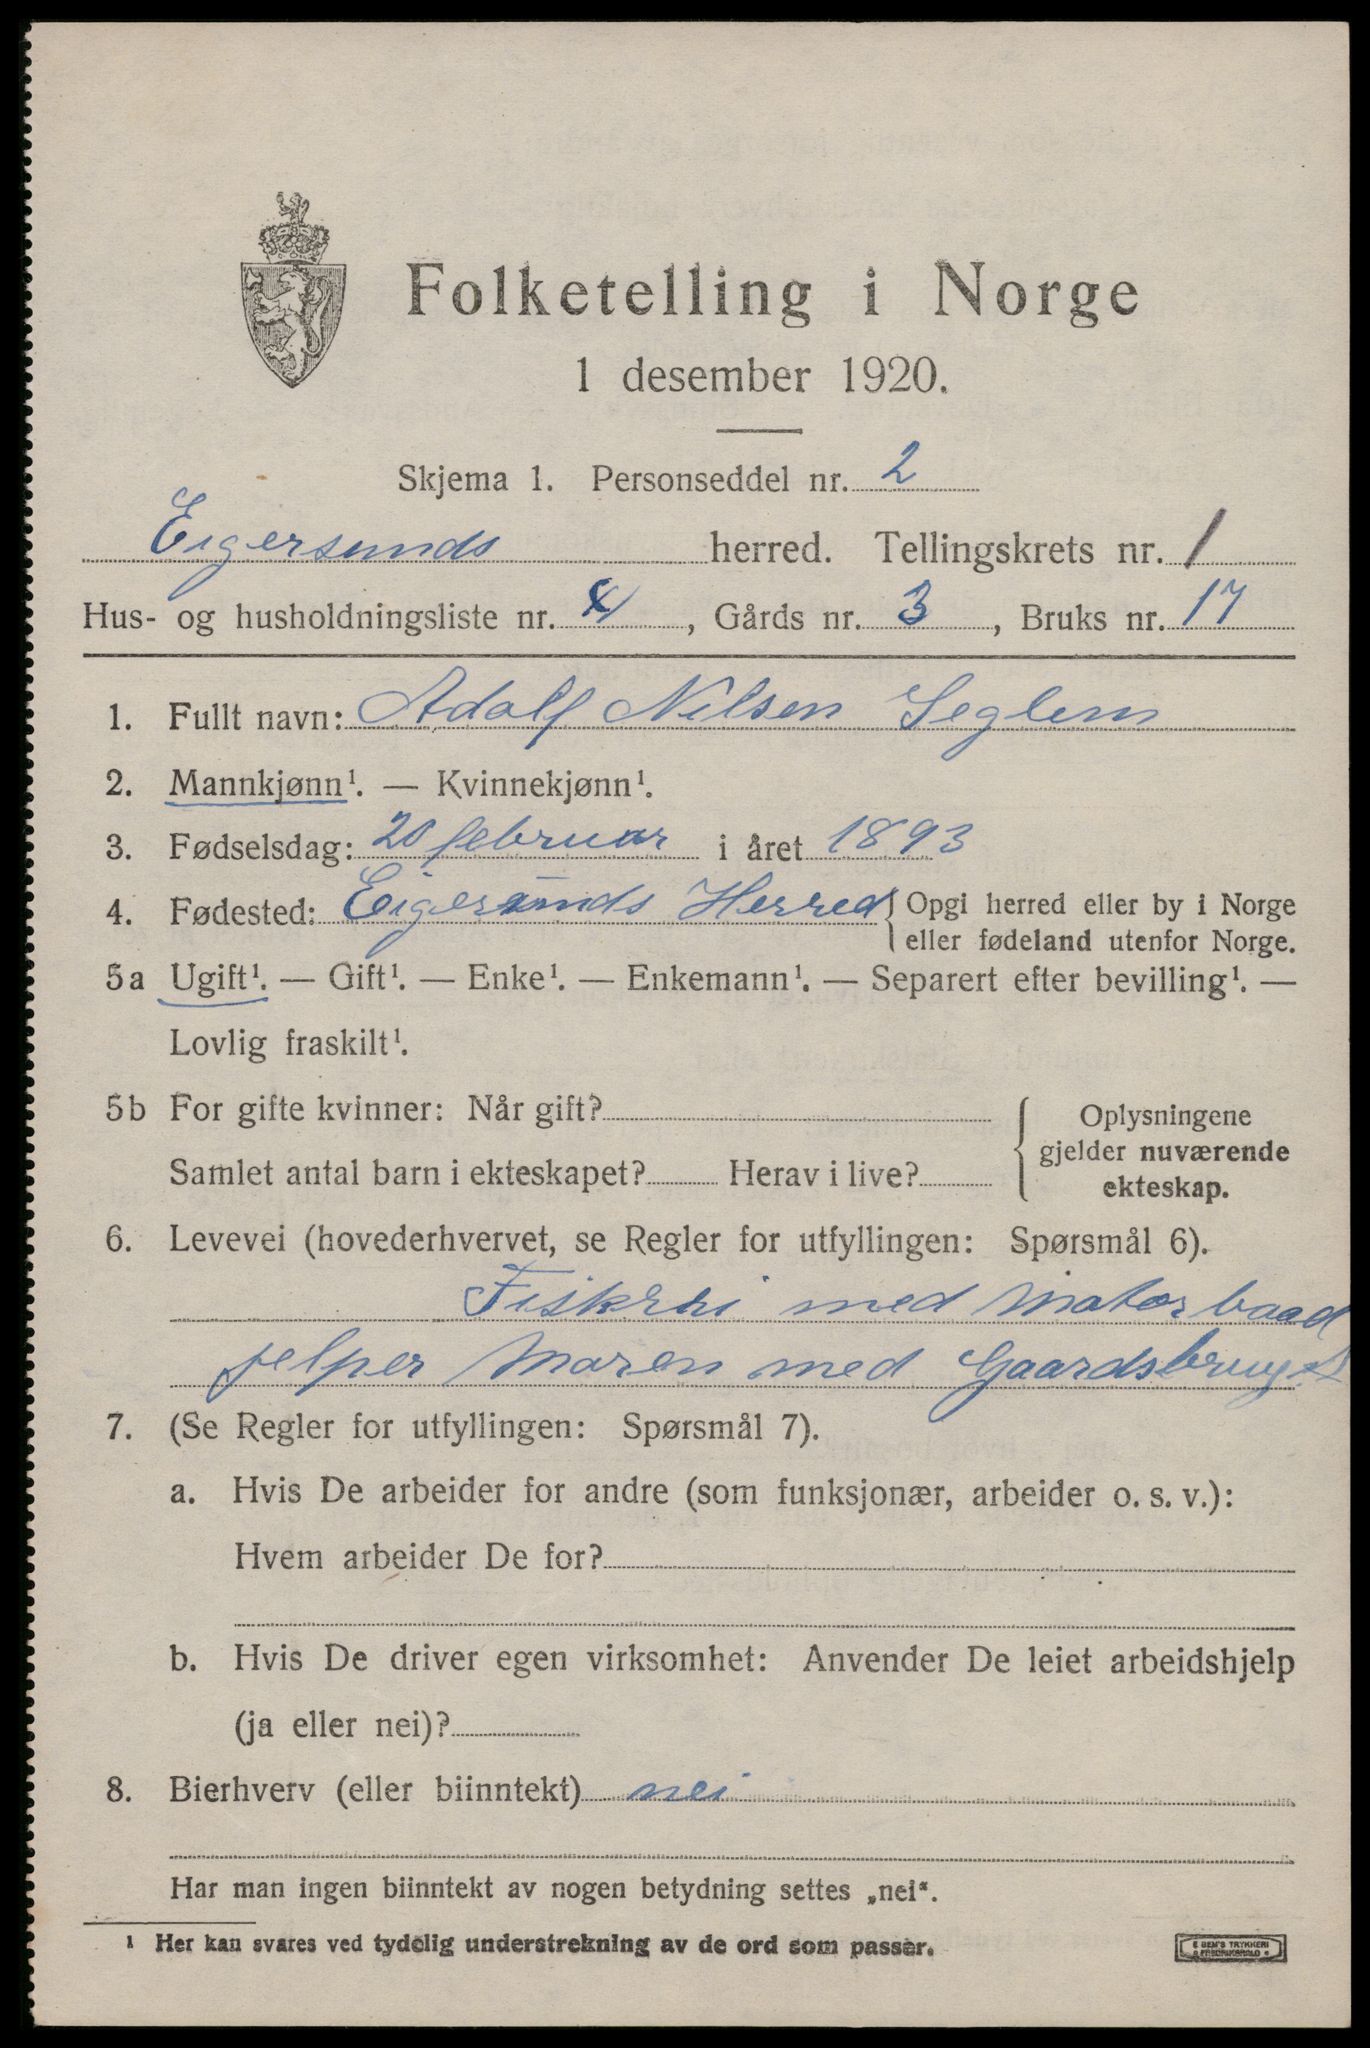 Folketelling i Norge
1 desember 1920.
Skjema 1. Personseddel nr. 2
Eigersunds herred. Tellingskrets nr. 1
Hus- og husholdningsliste nr. 4, Gårds nr. 3, Bruks nr. 17
1. Fullt navn: Adolf Nilsen Seglem
2. Mannkjønn¹. — Kvinnekjønn¹.
3. Fødselsdag: 20 februar i året 1893
4. Fødested: Eigersunds Herred { Opgi herred eller by i Norge
eller fødeland utenfor Norge.
5a Ugift¹. — Gift¹. — Enke¹. — Enkemann¹. — Separert efter bevilling¹. —
Lovlig fraskilt¹.
5b For gifte kvinner: Når gift?
Samlet antal barn i ekteskapet? Herav i live?
Oplysningene
gjelder nuværende
ekteskap.
6. Levevei (hovederhvervet, se Regler for utfyllingen: Spørsmål 6).
Fiskeri med Motorbaad
jelper Moren med Gaardsbruget
7. (Se Regler for utfyllingen: Spørsmål 7).
a. Hvis De arbeider for andre (som funksjonær, arbeider o. s. v.):
Hvem arbeider De for?
b. Hvis De driver egen virksomhet: Anvender De leiet arbeidshjelp
(ja eller nei)?
8. Bierhverv (eller biinntekt) nei
Har man ingen biinntekt av nogen betydning settes „nei“.
¹ Her kan svares ved tydelig understrekning av de ord som passer.